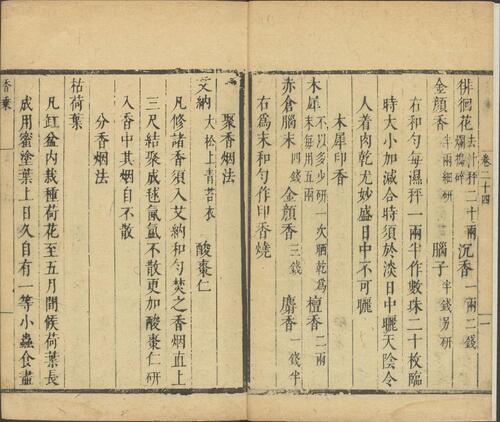 徘徊花去汁秤二十兩爛搗碎 沉香一兩二錢
金顏香半兩細研 腦子半錢另研
右和勻每濕秤一兩半作數珠二十枚臨
時大小加減合時須於淡日中曬天陰令
人着肉乾尤妙盛日中不可曬
木犀印香
木犀不以多少研一次晒乾為末每用五兩 檀香二兩
赤倉腦末四錢 金顏香三錢 麝香一錢半
右為末和勻作印香燒
卷二十四 一
聚香烟法
艾納大松上青苔衣 酸棗仁
凡修諸香須入艾納和勻焚之香烟直上
三尺結聚成毬氤氲不散更加酸棗仁研
入香中其烟自不散
分香烟法
枯荷葉
凡缸盆内栽種荷花至五月間候荷葉長
成用蜜塗葉上日久自有一等小蟲食盡
香乘